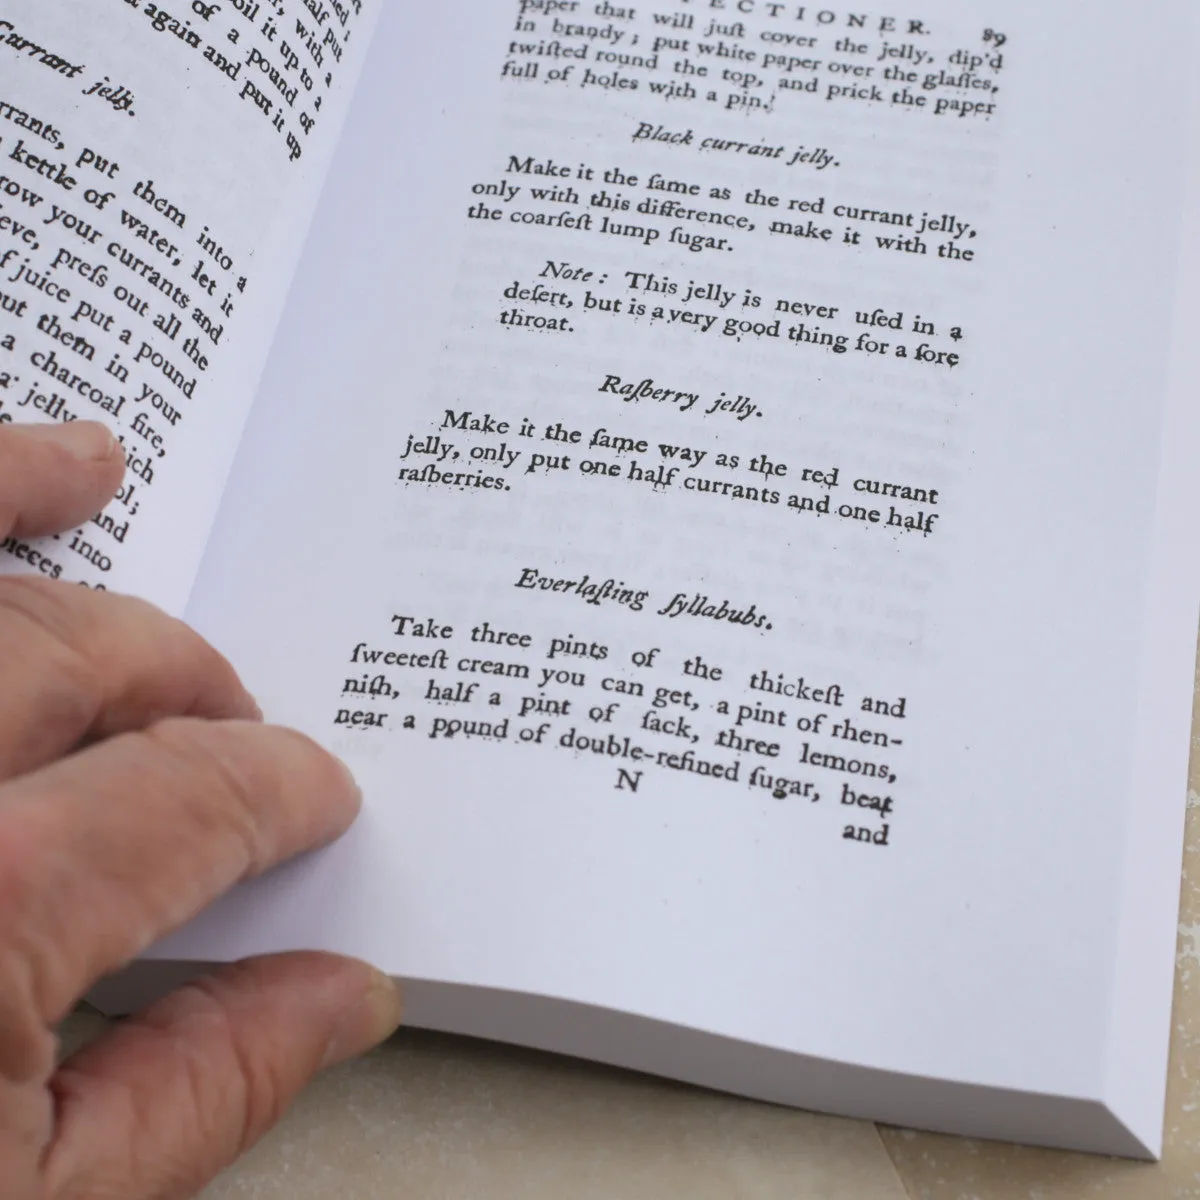 half put
with a
boil it up to a
of a pound of
again and put it up
Currant jelly.
put them into a
kettle of water, let it
row your currants and
preſs out all the
juice put a pound
put them in your
a charcoal fire,
jelly
and
into
pieces of
ECTIONER. 89
paper that will juſt cover the jelly, dip'd
in brandy; put white paper over the glaſſes,
twiſted round the top, and prick the paper
full of holes with a pin.
Black currant jelly.
Make it the ſame as the red currant jelly,
only with this difference, make it with the
the coarſeſt lump ſugar.
Note: This jelly is never uſed in a
deſert, but is a very good thing for a ſore
throat.
Raſberry jelly.
Make it the ſame way as the red currant
jelly, only put one half currants and one half
raſberries.
Everlaſting ſyllabubs.
Take three pints of the thickeſt and
ſweeteſt cream you can get, a pint of rhen-
niſh, half a pint of ſack, three lemons,
near a pound of double-refined ſugar, beat
N
and